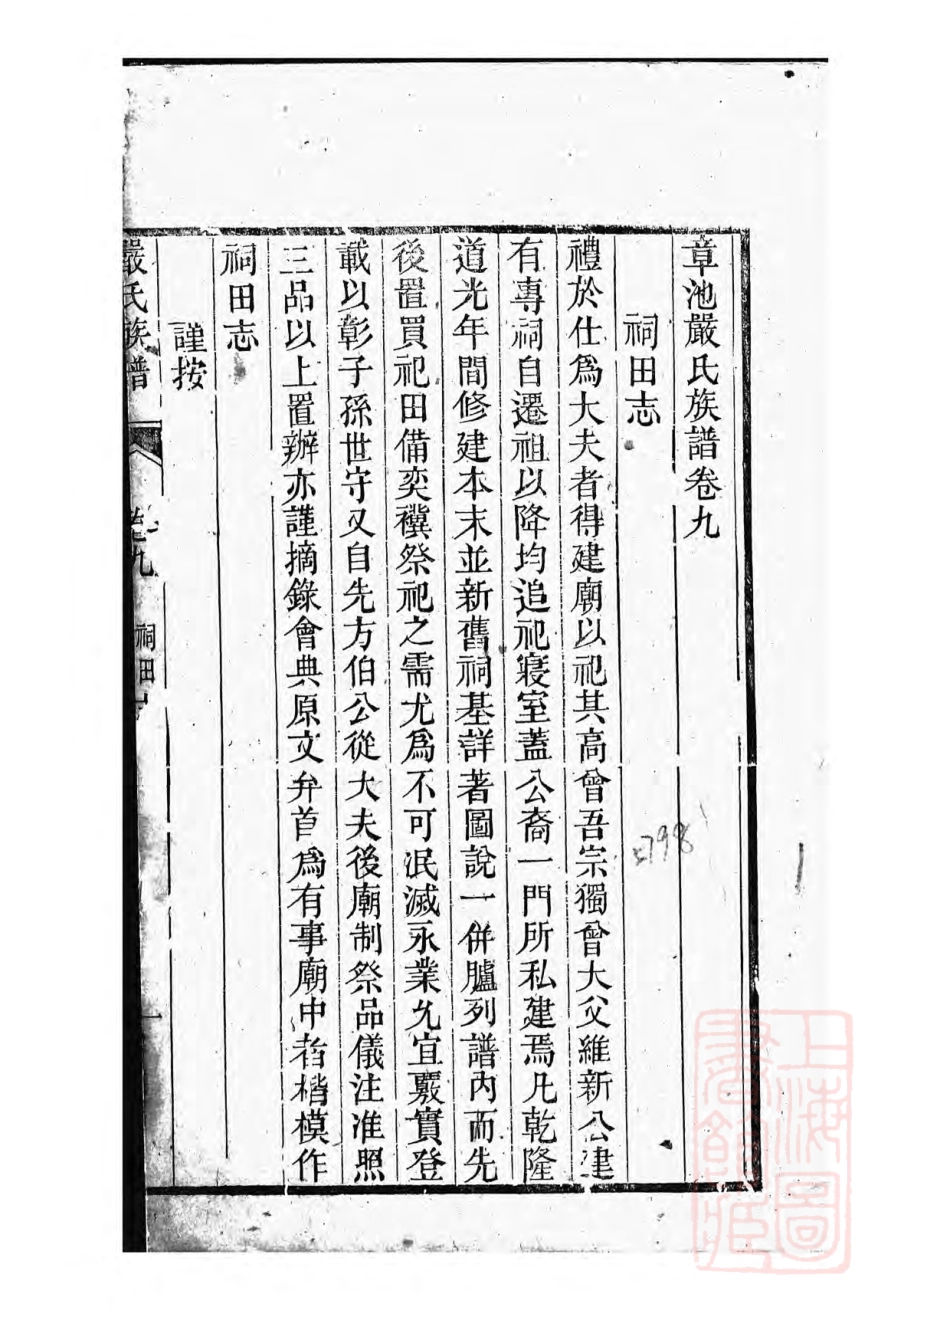 章池嚴氏族譜卷九
祠田志
禮於仕爲大夫者得建廟以祀其高曾吾宗獨曾大父維新公建
有專祠自遷祖以降均追祀寢室蓋公裔一門所私建焉凡乾隆
道光年間修建本末並新舊祠基詳著圖說一併臚列譜內而先
後置買祀田備奕禩祭祀之需尤爲不可泯滅永業允宜覈實登
載以彰子孫世守又自先方伯公從大夫後廟制祭品儀注准照
三品以上置辦亦謹摘錄會典原文弁首爲有事廟中者楷模作
祠田志
謹按
嚴氏族譜
卷九
祠田
一
798
上海圖
書館藏